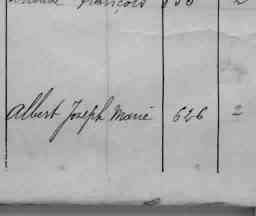 François 636 2
Albert Joseph Marie 626 2